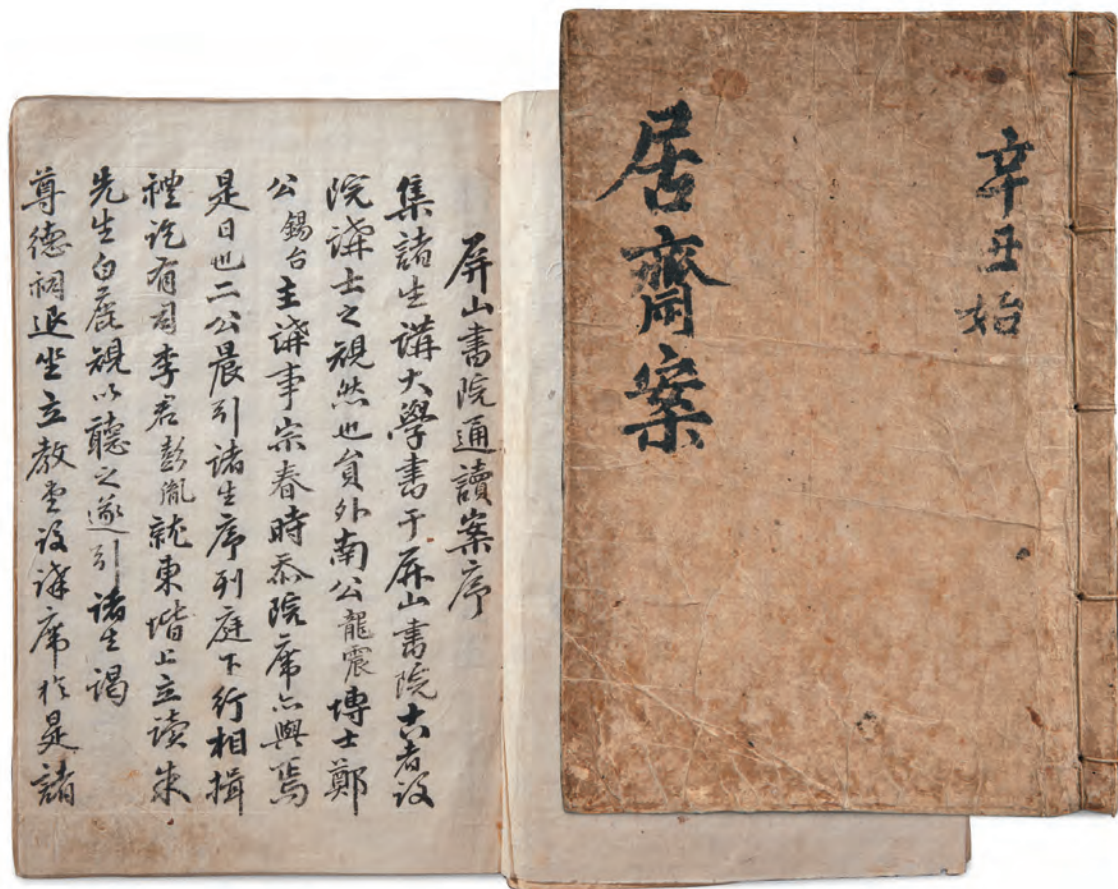 辛丑始
居齋案
屏山書院通讀案序
集諸生講大學書于屏山書院古者設
院講士之規然也員外南公龍震博士鄭
公錫台主講事宗春時忝院席亦與焉
是日也二公晨引諸生序列庭下行相揖
禮訖有司李君彭胤就東堦上立讀朱
先生白鹿規以聽之遂引諸生謁
尊德祠退坐立教堂設講席於是諸